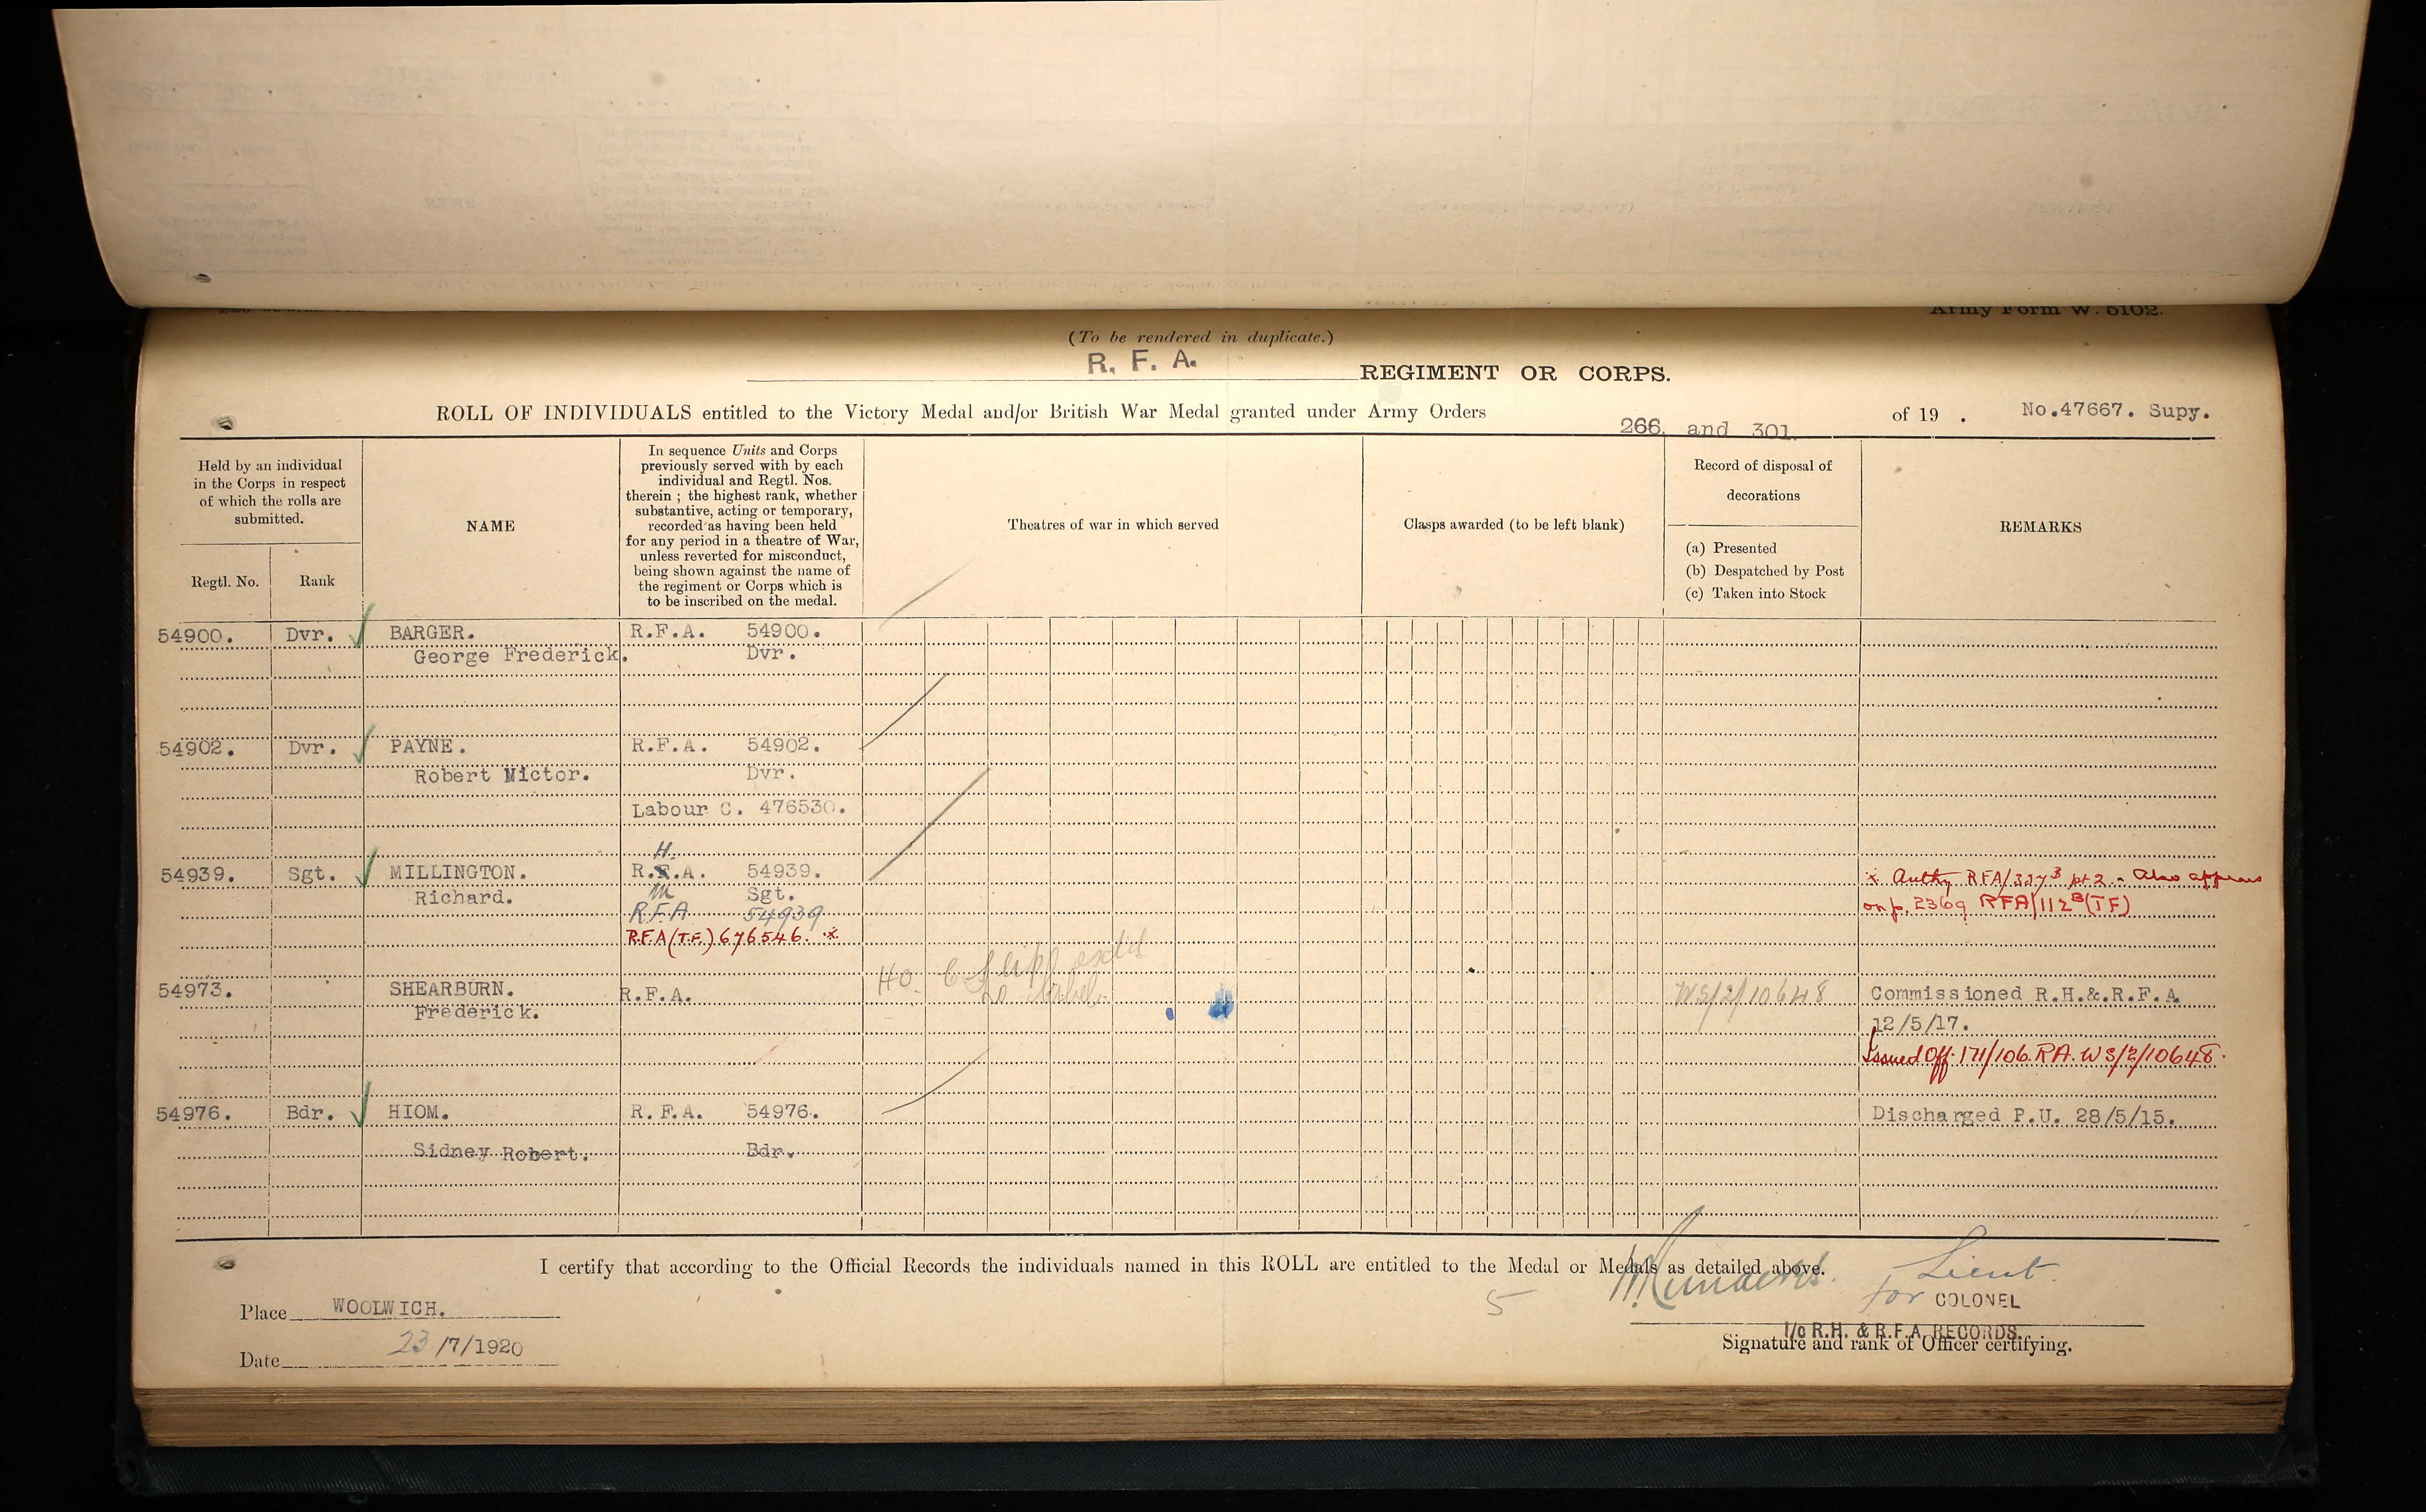 Army Form W. 5102.
(To be rendered in duplicate.)
R. F. A. REGIMENT OR CORPS.
ROLL OF INDIVIDUALS entitled to the Victory Medal and/or British War Medal granted under Army Orders 266. and 301. of 19 . No.47667. Supy.
Held by an individual
in the Corps in respect
of which the rolls are
submitted.
Regtl. No.
Rank
NAME
In sequence Units and Corps
previously served with by each
individual and Regtl. Nos.
therein ; the highest rank, whether
substantive, acting or temporary,
recorded as having been held
for any period in a theatre of War,
unless reverted for misconduct,
being shown against the name of
the regiment or Corps which is
to be inscribed on the medal.
Theatres of war in which served
Clasps awarded (to be left blank)
Record of disposal of
decorations
(a) Presented
(b) Despatched by Post
(c) Taken into Stock
REMARKS
54900. Dvr. BARGER. R.F.A. 54900.
George Frederick. Dvr.
54902. Dvr. PAYNE. R.F.A. 54902.
Robert Victor. Dvr.
Labour C. 476530.
H.
54939. Sgt. MILLINGTON. R.F.A. 54939. x Authy RFA/337B pt 2 - Also appears
Richard. m Sgt. on p. 2369 RFA/112B(TF)
RFA 54939
RFA(T.F.) 676546. x
54973. SHEARBURN. R.F.A. HO. WS/2/10648 Commissioned R.H.&.R.F.A.
Frederick. 12/5/17.
Issued Off. 171/106. RA. WS/2/10648.
54976. Bdr. HIOM. R.F.A. 54976. Discharged P.U. 28/5/15.
Sidney Robert. Bdr.
I certify that according to the Official Records the individuals named in this ROLL are entitled to the Medal or Medals as detailed above.
Lieut.
5
for COLONEL
Place WOOLWICH.
I/c R.H. & R.F.A. RECORDS.
Signature and rank of Officer certifying.
Date 23/7/1920